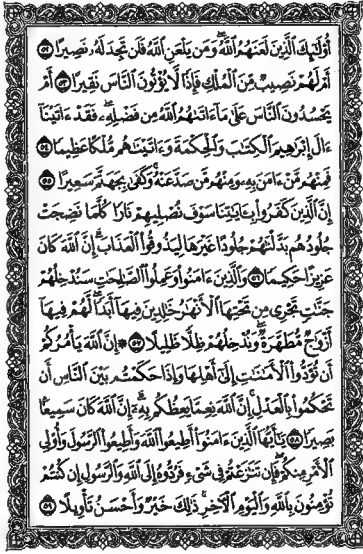 أُوْلَٰٓئِكَ ٱلَّذِينَ لَعَنَهُمُ ٱللَّهُۖ وَمَن يَلْعَنِ ٱللَّهُ فَلَن تَجِدَ لَهُۥ نَصِيرًا ٥٢
أَمْ لَهُمْ نَصِيبٌ مِّنَ ٱلْمُلْكِ فَإِذًا لَّا يُؤْتُونَ ٱلنَّاسَ نَقِيرًا ٥٣ أَمْ
يَحْسُدُونَ ٱلنَّاسَ عَلَىٰ مَآ ءَاتَىٰهُمُ ٱللَّهُ مِن فَضْلِهِۦۖ فَقَدْ ءَاتَيْنَآ
ءَالَ إِبْرَٰهِيمَ ٱلْكِتَٰبَ وَٱلْحِكْمَةَ وَءَاتَيْنَٰهُم مُّلْكًا عَظِيمًا ٥٤
فَمِنْهُم مَّنْ ءَامَنَ بِهِۦ وَمِنْهُم مَّن صَدَّ عَنْهُۚ وَكَفَىٰ بِجَهَنَّمَ سَعِيرًا ٥٥
إِنَّ ٱلَّذِينَ كَفَرُوا۟ بِـَٔايَٰتِنَا سَوْفَ نُصْلِيهِمْ نَارًا كُلَّمَا نَضِجَتْ
جُلُودُهُم بَدَّلْنَٰهُمْ جُلُودًا غَيْرَهَا لِيَذُوقُوا۟ ٱلْعَذَابَۗ إِنَّ ٱللَّهَ كَانَ
عَزِيزًا حَكِيمًا ٥٦ وَٱلَّذِينَ ءَامَنُوا۟ وَعَمِلُوا۟ ٱلصَّٰلِحَٰتِ سَنُدْخِلُهُمْ
جَنَّٰتٍ تَجْرِى مِن تَحْتِهَا ٱلْأَنْهَٰرُ خَٰلِدِينَ فِيهَآ أَبَدًاۖ لَّهُمْ فِيهَآ
أَزْوَٰجٌ مُّطَهَّرَةٌۖ وَنُدْخِلُهُمْ ظِلًّا ظَلِيلًا ٥٧ ۞ إِنَّ ٱللَّهَ يَأْمُرُكُمْ
أَن تُؤَدُّوا۟ ٱلْأَمَٰنَٰتِ إِلَىٰٓ أَهْلِهَا وَإِذَا حَكَمْتُم بَيْنَ ٱلنَّاسِ أَن
تَحْكُمُوا۟ بِٱلْعَدْلِۚ إِنَّ ٱللَّهَ نِعِمَّا يَعِظُكُم بِهِۦٓۗ إِنَّ ٱللَّهَ كَانَ سَمِيعًۢا
بَصِيرًا ٥٨ يَٰٓأَيُّهَا ٱلَّذِينَ ءَامَنُوٓا۟ أَطِيعُوا۟ ٱللَّهَ وَأَطِيعُوا۟ ٱلرَّسُولَ وَأُو۟لِى
ٱلْأَمْرِ مِنكُمْۖ فَإِن تَنَٰزَعْتُمْ فِى شَىْءٍ فَرُدُّوهُ إِلَى ٱللَّهِ وَٱلرَّسُولِ إِن كُنتُمْ
تُؤْمِنُونَ بِٱللَّهِ وَٱلْيَوْمِ ٱلْأَخِرِۚ ذَٰلِكَ خَيْرٌ وَأَحْسَنُ تَأْوِيلًا ٥٩